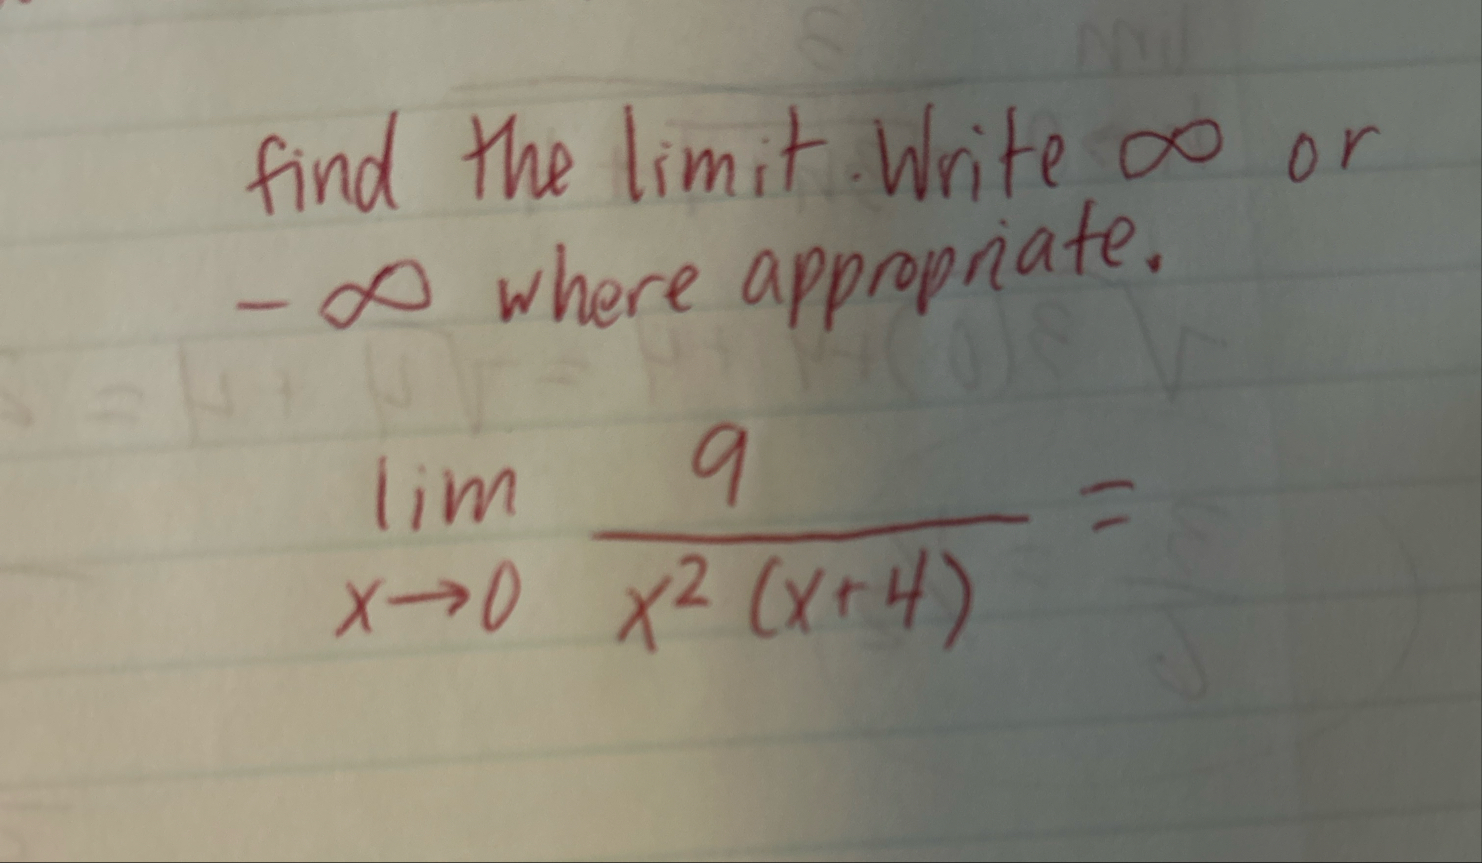 find the limit. Write ∞ or
- ∞ where appropriate.
lim 9 =
x→0 x² (x+4)